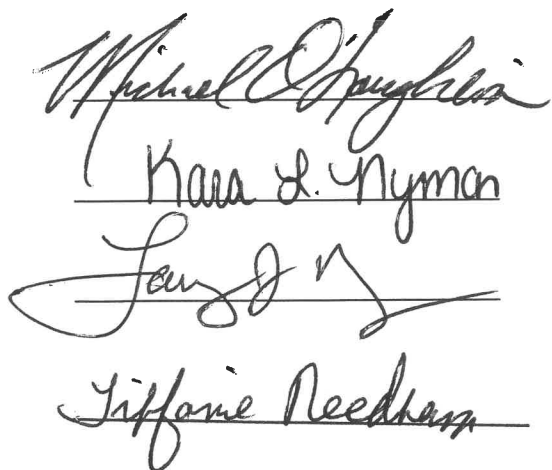 Michael O'Loughlin
Kara L. Nyman
Larry J N
Tiffanie Needham